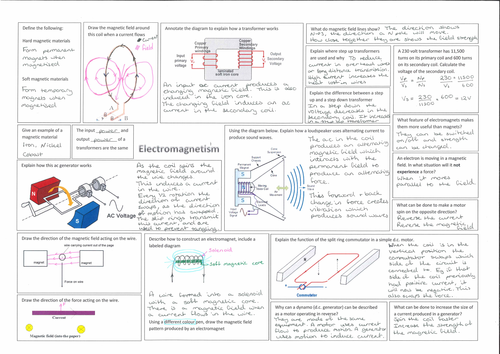 Define the following:
Hard magnetic materials
Form permanent
magnets when
magnetised
Soft magnetic materials
Form temporary
magnets when
magnetised
Draw the magnetic field around
this coil when a current flows
Field
Annotate the diagram to explain how a transformer works
Copper
Primary
windings
Copper
Secondary
Windings
Input
primary
voltage
Output
Secondary
Voltage
laminated
soft iron core
An input ac current produces a
changing magnetic field. This is also
induced in the iron core.
The changing field inducts an ac
current in the secondary coil.
What do magnetic field lines show?
The direction shows
the direction a N pole will move.
How close together they are shows the field strength
Explain where step up transformers
are used and why
To reduce
current in overhead wires
on long distance transmission
High current increases the
heat lost in wires
Explain the difference between a step
up and a step down transformer
In a step down the
voltage decreases in the
secondary coil. It increases
in a step up transformer
A 230 volt transformer has 11,500
turns on its primary coil and 600 turns
on its secondary coil. Calculate the
voltage of the secondary coil.
Vp = Np 230 = 11500
Vs Ns Vs 600
Vs = 230 x 600 = 12V
11500
Give an example of a
magnetic material
Iron, Nickel
Cobalt
The input power and
output power of a
transformers are the same
Electromagnetism
Using the diagram below: Explain how a loudspeaker uses alternating current to
produce sound waves.
The a.c in the coil
produces an alternating
magnetic field which
interacts with the
permanent field to
produce an alternating
force.
This forward + back
change in force creates
vibration which
produces sound waves
What feature of electromagnets makes
them more useful than magnets?
They can be switched
on/off and strength
can be changed.
An electron is moving in a magnetic
field. In what situation will it not
experience a force?
When it moves
parallel to the field.
What can be done to make a motor
spin on the opposite direction?
Reverse the current
Reverse the magnetic field
Explain how this ac generator works
AC Voltage
As the coil spins the
magnetic field around
the wire changes
This induces a current
in the wire.
Every ½ rotation the
direction of current
swaps, as the direction
of motion has swapped.
The slip rings transmit
this current, and are
used to prevent tangling
Draw the direction of the magnetic field acting on the wire.
wire carrying current out of the page
magnet
magnet
Force on wire
Draw the direction of the force acting on the wire.
Current
Magnetic field (into the paper)
Describe how to construct an electromagnet, include a
labelled diagram
Solenoid
Soft magnetic core
A wire formed into a solenoid
with a soft magnetic core.
There is a magnetic field when
a current flows in the wire.
Using a different colour pen, draw the magnetic field
pattern produced by an electromagnet
Explain the function of the split ring commutator in a simple d.c. motor.
Commutator
When the coil is in the
vertical position the
commutator swaps which
side of the circuit is
connected to. Eg if that
side of the coil previously
had positive current, it
will now be negative. This
also swaps the force.
Why can a dynamo (d.c. generator) can be described
as a motor operating in reverse?
They are made of the same
equipment. A motor uses current
flow to produce motion. A generator
uses motion to induce current.
What can be done to increase the size of
a current produced in a generator?
Spin the coil faster
Increase the strength of
the magnetic field.